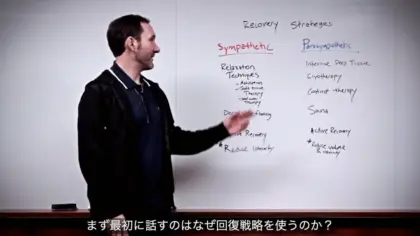 Recovery Strategies
Sympathetic
Parasympathetic
Relaxation
Intensive Deep Tissue
Techniques
Cryotherapy
Therapy
Contrast Therapy
Therapy
Sauna
Recovery
Active Recovery
* Reduce Intensity
* Reduce volume
& Intensity
まず最初に話すのはなぜ回復戦略を使うのか？